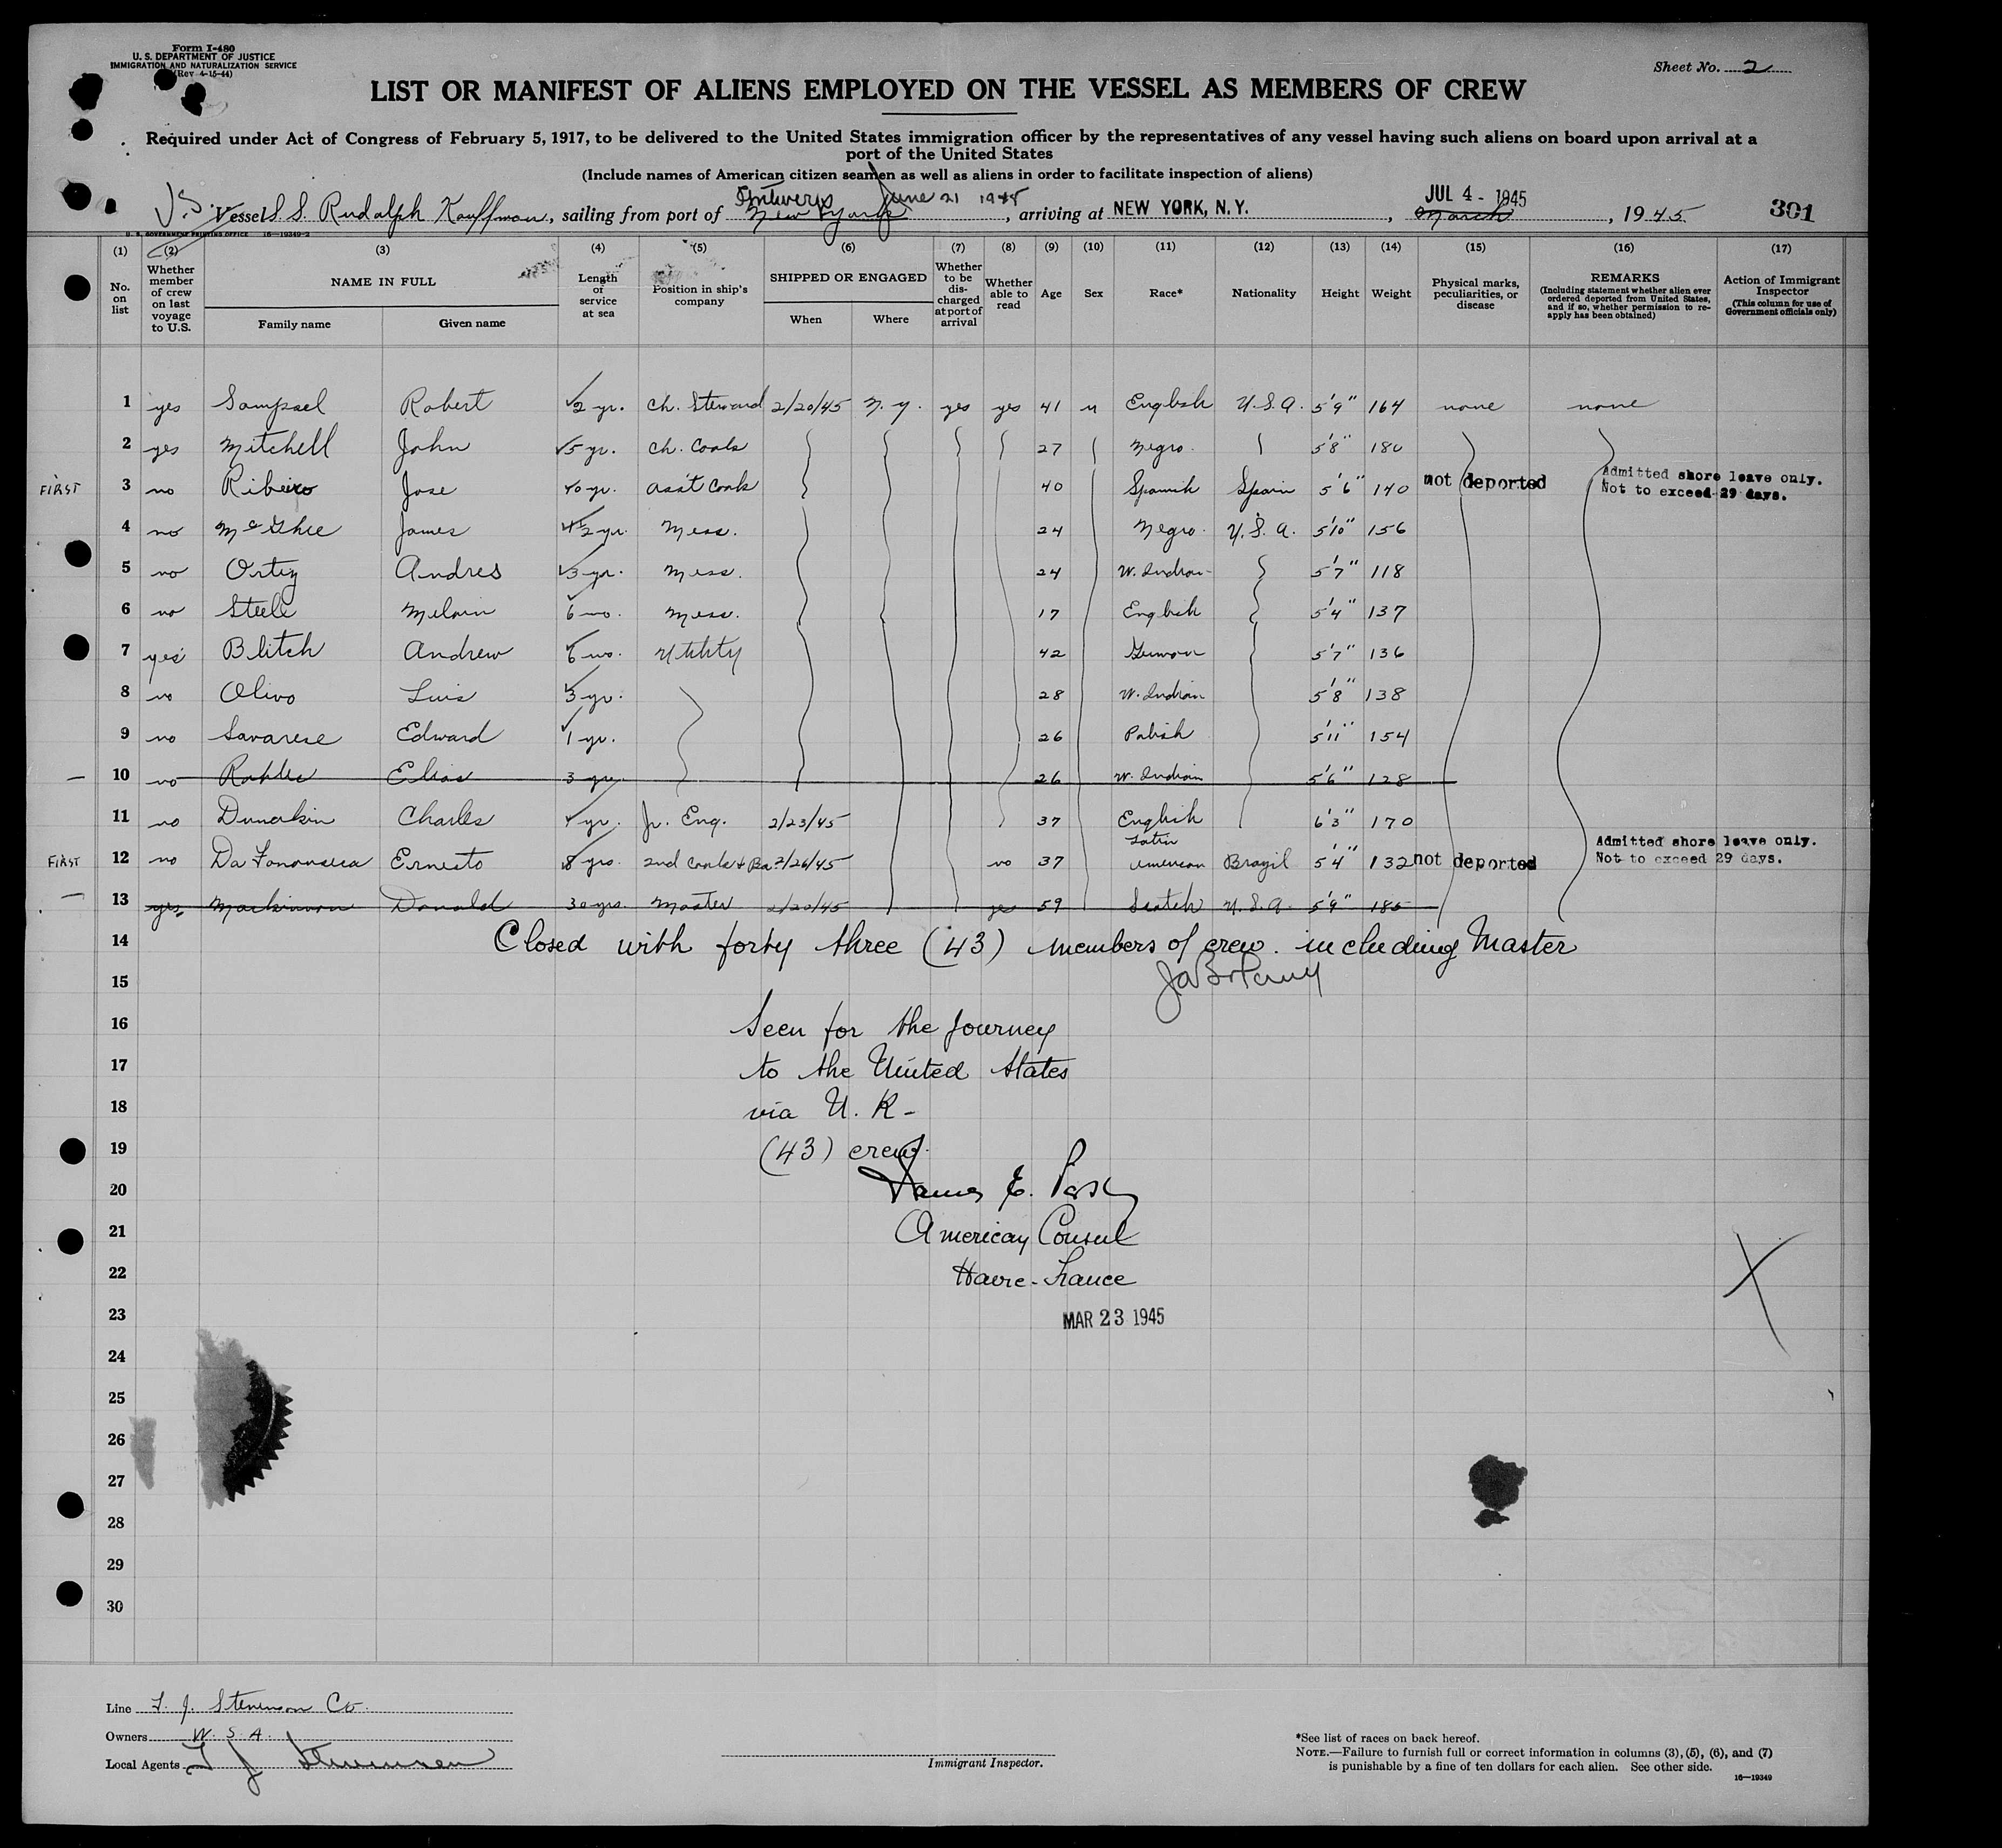 Form I-480
U. S. DEPARTMENT OF JUSTICE
IMMIGRATION AND NATURALIZATION SERVICE
(Rev 4-15-44)
Sheet No. 2
LIST OR MANIFEST OF ALIENS EMPLOYED ON THE VESSEL AS MEMBERS OF CREW
Required under Act of Congress of February 5, 1917, to be delivered to the United States immigration officer by the representatives of any vessel having such aliens on board upon arrival at a
port of the United States
(Include names of American citizen seamen as well as aliens in order to facilitate inspection of aliens)
Antwerp June 21 1945 JUL 4 - 1945
Vessel S.S. Rudolph Kauffman, sailing from port of New York, arriving at NEW YORK, N. Y., March, 1945 301
U. S. GOVERNMENT PRINTING OFFICE 16-19349-2
(1) (2) (3) (4) (5) (6) (7) (8) (9) (10) (11) (12) (13) (14) (15) (16) (17)
No. on list
Whether member of crew on last voyage to U.S.
NAME IN FULL
Family name Given name
Length of service at sea
Position in ship's company
SHIPPED OR ENGAGED
When Where
Whether to be discharged at port of arrival
Whether able to read
Age
Sex
Race*
Nationality
Height
Weight
Physical marks, peculiarities, or disease
REMARKS
(Including statement whether alien ever ordered deported from United States, and if so, whether permission to re-apply has been obtained)
Action of Immigrant Inspector
(This column for use of Government officials only)
1 yes Sampsel Robert 2 yr. Ch. Steward 2/20/45 N.Y. yes yes 41 M English U.S.A. 5'9" 164 none none
2 yes Mitchell John 5 yr. Ch. Cook 27 Negro 5'8" 180
FIRST 3 no Ribeiro Jose 40 yr. Ass't Cook 40 Spanish Spain 5'6" 140 not deported Admitted shore leave only. Not to exceed 29 days.
4 no McGhee James Mess. 24 Negro U.S.A. 5'10" 156
5 no Ortiz Andres 3 yr. Mess. 24 W. Indian 5'7" 118
6 no Steele Melvin 6 mo. Mess. 17 English 5'4" 137
7 yes Blitch Andrew 6 mo. Utility 42 German 5'7" 136
8 no Olivo Luis 3 yr. 28 W. Indian 5'8" 138
9 no Savarese Edward 1 yr. 26 Polish 5'11" 154
10 no Elias 3 yrs. 26 W. Indian 5'6" 128
11 no Dunakin Charles yr. Jr. Eng. 2/23/45 37 English 6'3" 170
FIRST 12 no Da Fonseca Ernesto 8 yrs. 2nd Cook & Ba. 2/26/45 no 37 Latin American Brazil 5'4" 132 not deported Admitted shore leave only. Not to exceed 29 days.
13 yes Mackinnon Donald 30 yrs. Master 2/20/45 yes 59 Scotch U.S.A. 5'9" 185
14 Closed with forty three (43) members of crew. including Master
15
16 Seen for the journey
17 to the United States
18 via U. K-
19 (43) crew.
20 James E.
21 American Consul
22 Havre-France
23 MAR 23 1945
24
25
26
27
28
29
30
Line T. J. Stevenson Co.
Owners W. S. A.
Local Agents T J Stevenson
Immigrant Inspector.
*See list of races on back hereof.
NOTE.—Failure to furnish full or correct information in columns (3), (5), (6), and (7)
is punishable by a fine of ten dollars for each alien. See other side.
16—19349